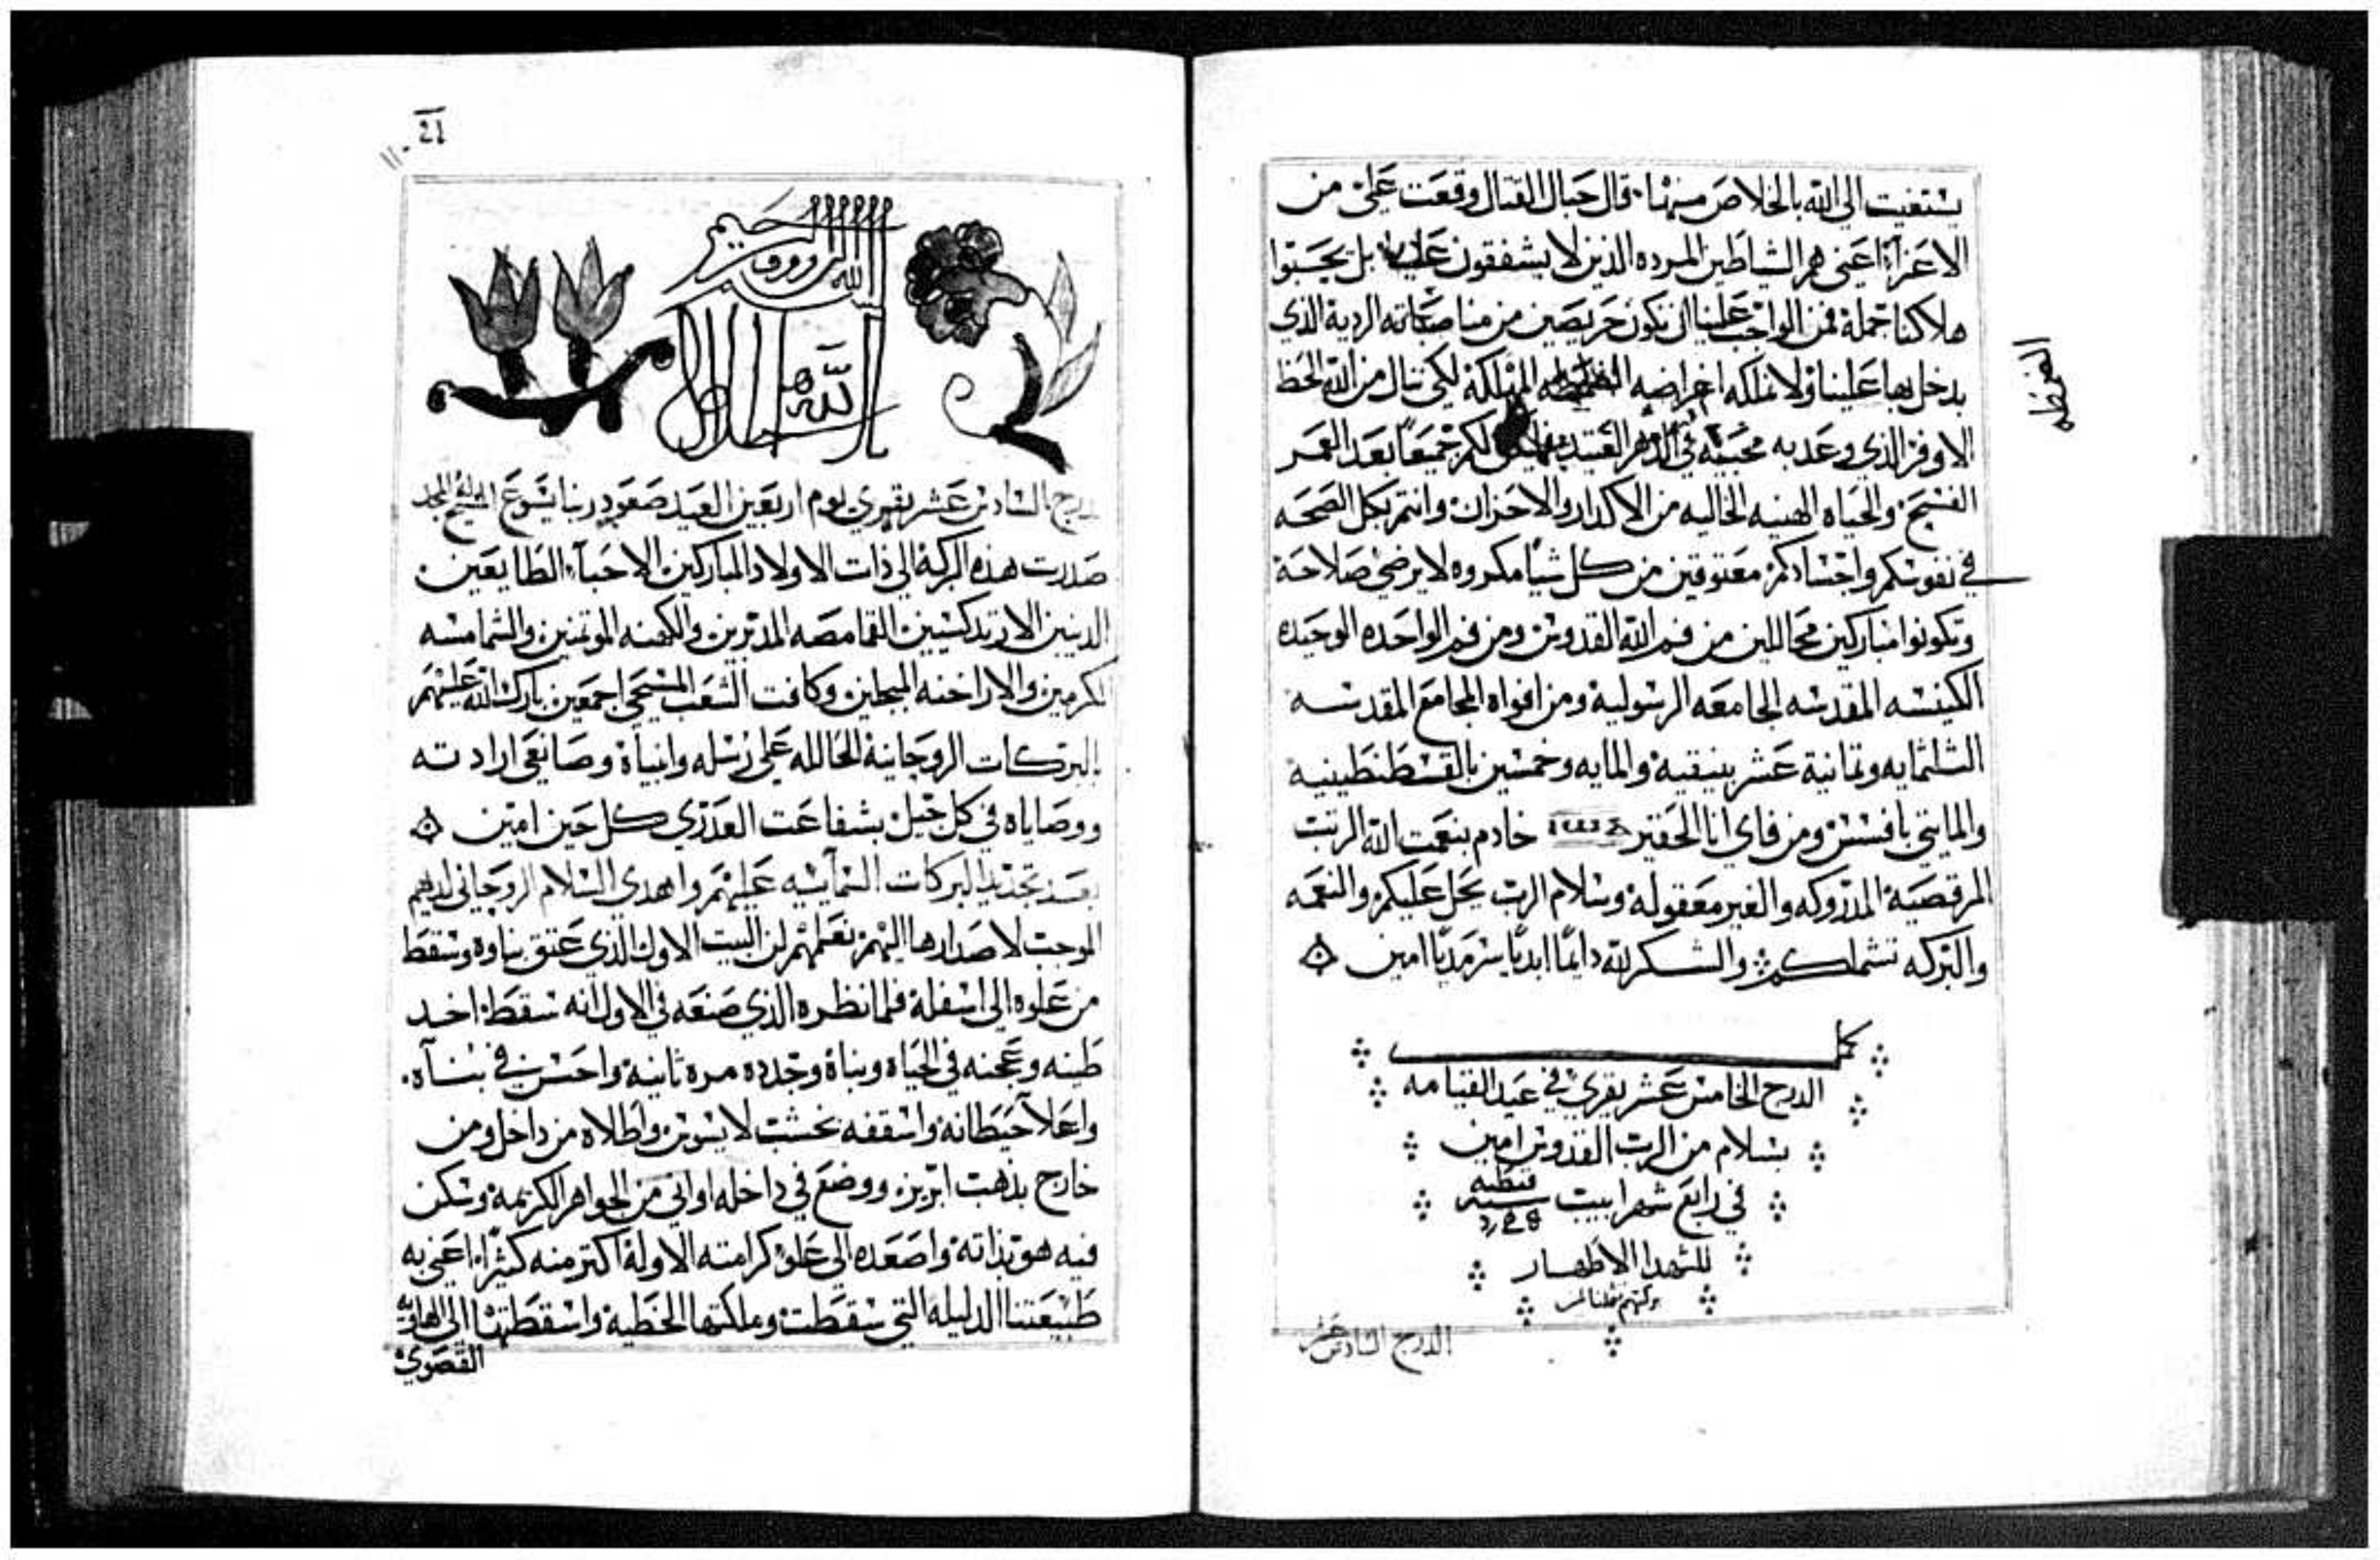 يستغيت الي الله بالخلاص منهما. قال حبال القتال وقعت علي من
الاعزآ، اعني هم الشياطين المرده الذين لا يشفقون علينا بل يحسبوا
هلاكنا جمله فمن الواجب علينا ان نكون حريصين من مناصباته الرديه الذي
يدخل بها علينا ولا نملكه اغراضه المهلكه لكي ننال من الله الحظ
الاوفر الذي وعد به محبيه في الدهر العتيد لكم جميعاً بعد العمر
المفرطه
الفسيح والحياه الهنيه الخاليه من الاكدار والاحزان وانتم بكل الصحه
في نفوسكم واجسادكم معتوقين من كل شياً مكروه لا يرضي صلاحه
وتكونوا مباركين محاللين من فم الله القدوس ومن فم الواحده الوحيده
الكنيسه المقدسه الجامعه الرسوليه ومن افواه المجامع المقدسه
الثلثمايه وتمانية عشر بنيقيه والمايه وخمسين بالقسطنطينيه
والمايتي بافسس ومن فاي انا الحقير خادم بنعمت الله الرتب
المرقصيه المدروكه والغير معقوله وسلام الرب يحل عليكم والنعمه
والبركه تشملكم والشكر لله دايماً ابدياً سرمدياً امين
كمل
الدرج الخامس عشر يقري في عيد القيامه
بسلام من الرب القدوس امين
في رابع شهر ابيب سنه قبطيه
للشهدا الاطهار
بركتهم تشملنا
الدرج السادس عشر
21
بسم الله الرووف الرحيم
الدرج السادس عشر يقري يوم اربعين العيد صعود ربنا يسوع المسيح المجد
صدرت هذه البركه الي ذات الاولاد المباركين الاحبآء الطايعين
الدينين الارتدكسيين القمامصه المدبرين والكهنه الموتمنين والشمامسه
المكرمين والاراخنه المبجلين وكافت الشعب المسيحي اجمعين بارك الله عليهم
بالبركات الروحانيه الحالله علي رسله وانبياه وصانعي ارادته
ووصاياه في كل جيل بشفاعت العدري كل حين امين
بعد تجديد البركات السمآييه عليهم واهدي السلام الروحاني لديهم
الموجب لاصدارها اليهم نعلمهم ان البيت الاول الذي عتق بناوه وسقط
من علوه الي اسفله فلما نظره الذي صنعه في الاول انه سقط اخد
طينه وعجنه في الحياه وبناه وجدده مره تانيه واحسن في بنآه.
واعلا حيطانه واسقفه بخشب لا يسوس واطلاه من داخل ومن
خارج بدهب ابريز ووضع في داخله اواني من الجواهر الكريمه وسكن
فيه هو بذاته واصعده الي علو كرامته الاوله اكتر منه كثيراً، اعني به
طبيعتنا الدليله التي سقطت وملكتها الخطيه واسقطتها الي الهاويه
القصوي